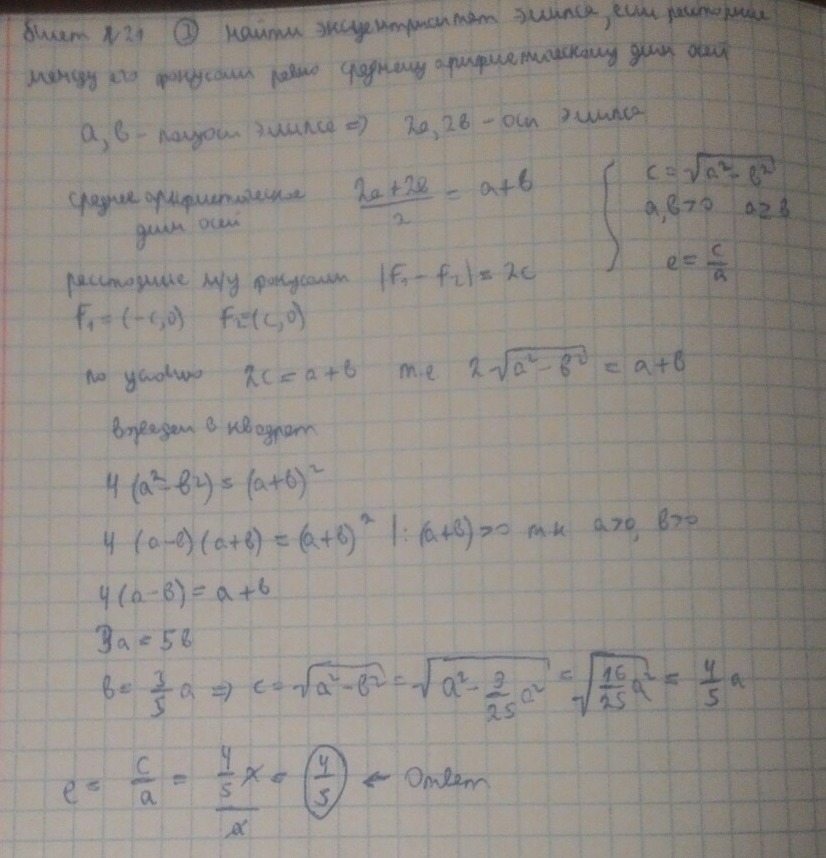 билет №21 ① Найти эксцентриситет элипса, если расстояние
между его фокусами равно среднему арифметическому длин осей
a, b - полуоси элипса => 2a, 2b - оси элипса
среднее арифметическое (2a+2b)/2 = a+b
длин осей
{ c = √(a² - b²)
a, b > 0 a ≥ b
e = c/a
расстояние м/у фокусами |F₁ - F₂| = 2c
F₁ = (-c, 0) F₂ = (c, 0)
по условию 2c = a+b т.е 2√(a² - b²) = a+b
возведем в квадрат
4(a² - b²) = (a+b)²
4 (a-b)(a+b) = (a+b)² |: (a+b) >0 т.к a>0, b>0
4(a-b) = a+b
3a = 5b
b = 3/5 a => c = √(a² - b²) = √(a² - 9/25 a²) = √(16/25 a²) = 4/5 a
e = c/a = (4/5 a)/a = 4/5 ← Ответ